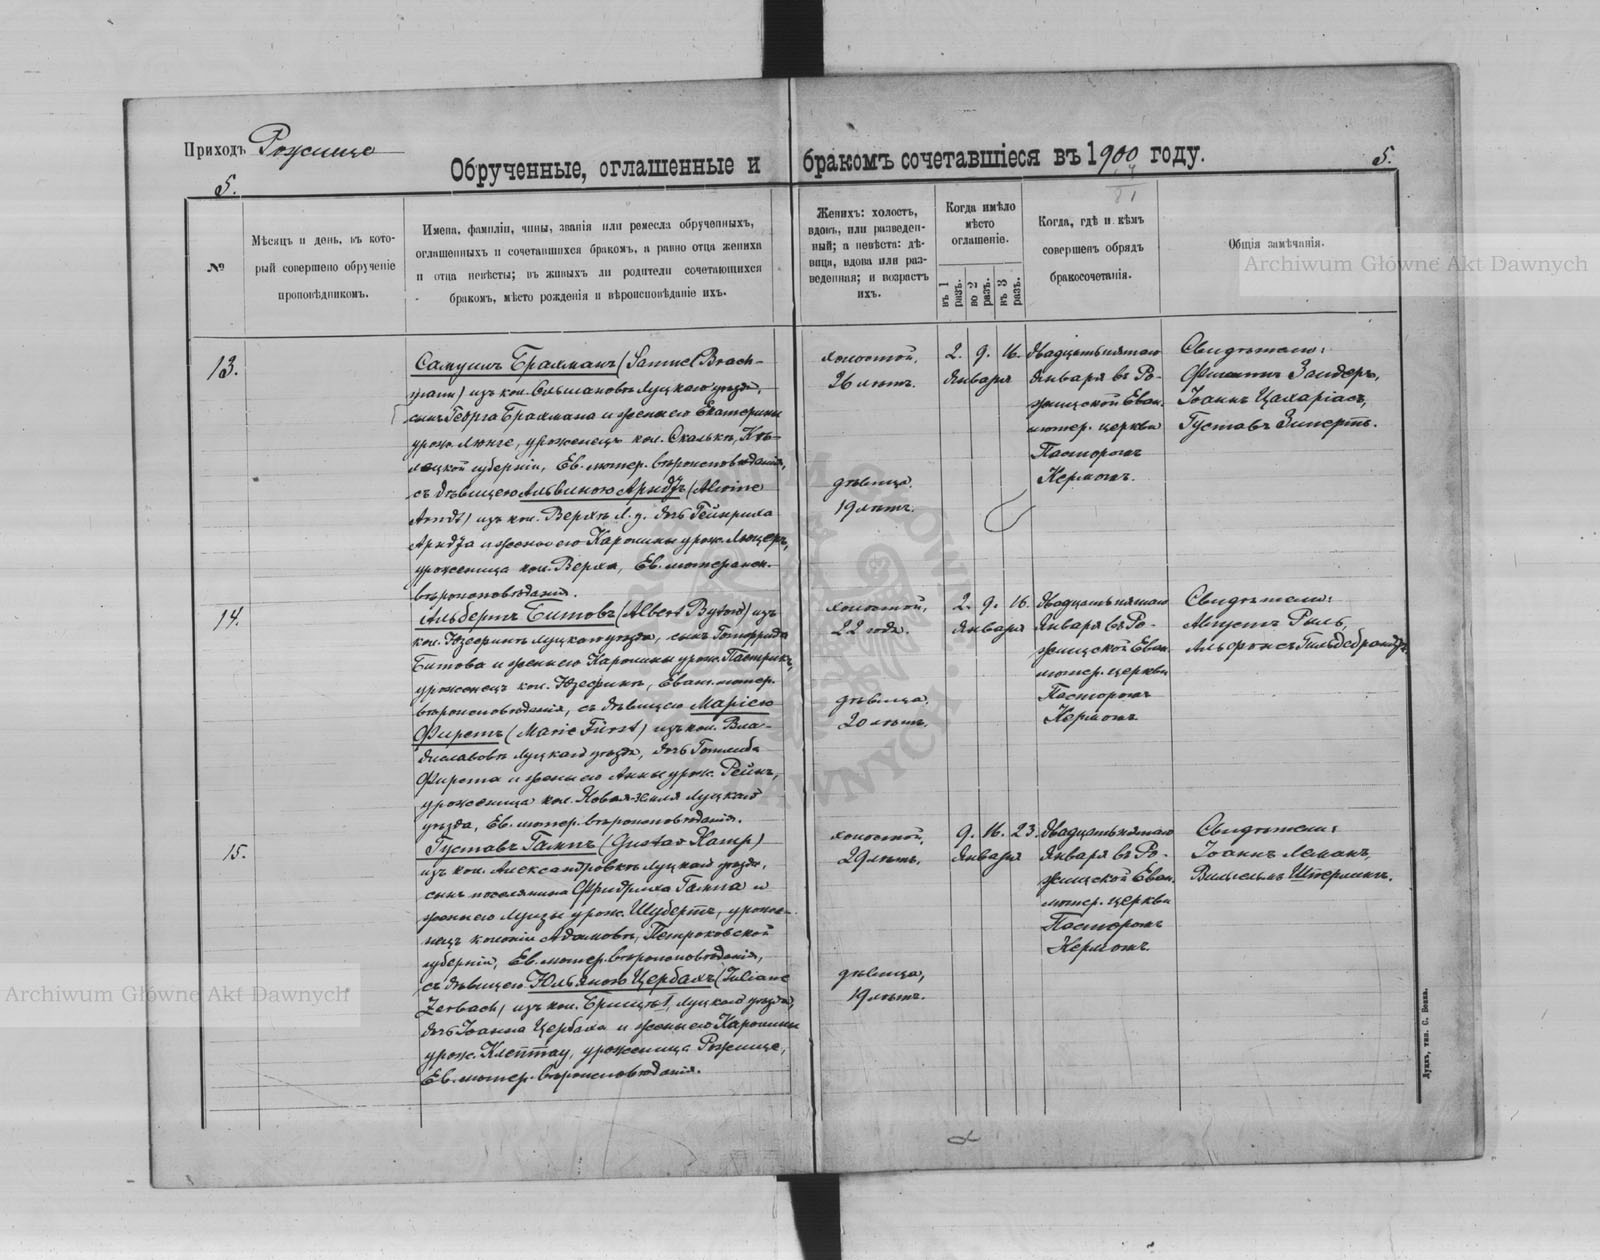 Приходъ Рожище
Обрученные, оглашенные и бракомъ сочетавшіеся въ 1900 году.
5.
5.
№
Мѣсяцъ и день, въ кото-
рый совершено обрученіе
проповѣдникомъ.
Имена, фамиліи, чины, званія или ремесла обрученныхъ,
оглашенныхъ и сочетавшихся бракомъ, а равно отца жениха
и отца невѣсты; въ живыхъ ли родители сочетающихся
бракомъ, мѣсто рожденія и вѣроисповѣданіе ихъ.
Женихъ: холостъ,
вдовъ, или разведен-
ный; а невѣста: дѣ-
вица, вдова или раз-
веденная; и возрастъ
ихъ.
Когда имѣло
мѣсто
оглашеніе.
въ 1 разъ.
во 2 разъ.
въ 3 разъ.
Когда, гдѣ и кѣмъ
совершенъ обрядъ
бракосочетанія.
Общія замѣчанія.
13.
Самуилъ Брахманъ (Samuel Brach-
mann) изъ кол. Ольшановъ Луцкаго уѣзда,
сынъ Георга Брахмана и жены его Екатерины
урожд. Люнге, уроженецъ кол. Скальки, Кѣ-
лецкой губерніи, Ев. лютер. вѣроисповѣданія,
съ дѣвицею Альвиною Арндтъ (Alwine
Arndt) изъ кол. Верхъ Л. у. дочь Гейнриха
Арндта и жены его Каролины урожд. Люцеръ,
уроженица кол. Верха, Ев. лютеранск.
вѣроисповѣданія.
холостой,
26 лѣтъ.
дѣвица.
19 лѣтъ.
2. 9. 16.
Января
двадцать пятаго
Января въ Ро-
жищской Еван.
лютер. церкви
Пасторомъ
Кермомъ.
Свидѣтели:
Филиппъ Зандеръ,
Іоаннъ Цахаріасъ,
Густавъ Зипертъ.
14.
Альбертъ Битовъ (Albert Bytow) изъ
кол. Юзефинъ Луцкаго уѣзда, сынъ Готфрида
Битова и жены его Каролины урож. Пастрикъ,
уроженецъ кол. Юзефинъ, Еванг. лютер.
вѣроисповѣданія, съ дѣвицею Маріею
Фирстъ (Marie Fürst) изъ кол. Вла-
диславовъ Луцкаго уѣзда, дочь Готлиба
Фирста и жены его Анны урож. Рейнъ,
уроженица кол. Новая-Земля Луцкаго
уѣзда, Ев. лютер. вѣроисповѣданія.
холостой,
22 года.
дѣвица,
20 лѣтъ.
2. 9. 16.
Января
двадцать пятаго
Января въ Ро-
жищской Еван.
лютер. церкви
Пасторомъ
Кермомъ
Свидѣтели:
Августъ Риль,
Альфонсъ Гильдебрандтъ.
15.
Густавъ Гампъ (Gustav Hamp)
изъ кол. Александровка Луцкаго уѣзда,
сынъ поселянина Фридриха Гампа и
жены его Луизы урож. Шубертъ, урожен-
нецъ колоніи Адамовъ, Петроковской
губерніи, Ев. лютер. вѣроисповѣданія,
съ дѣвицею Юльяною Цербахъ (Juliane
Zerbach) изъ кол. Брищъ I, Луцкаго уѣзда,
дочь Іоанна Цербаха и жены его Каролины
урож. Клептау, уроженица Рожище,
Ев. лютер. вѣроисповѣданія.
холостой,
29 лѣтъ.
дѣвица,
19 лѣтъ.
9. 16. 23.
Января
двадцать пятаго
Января въ Ро-
жищской Еван.
лютер. церкви
Пасторомъ
Кермомъ.
Свидѣтели:
Іоаннъ Леманъ,
Вильгельмъ Штерлингъ.
Луцкъ, тип. С. Бокка.
Archiwum Główne Akt Dawnych
Archiwum Główne Akt Dawnych